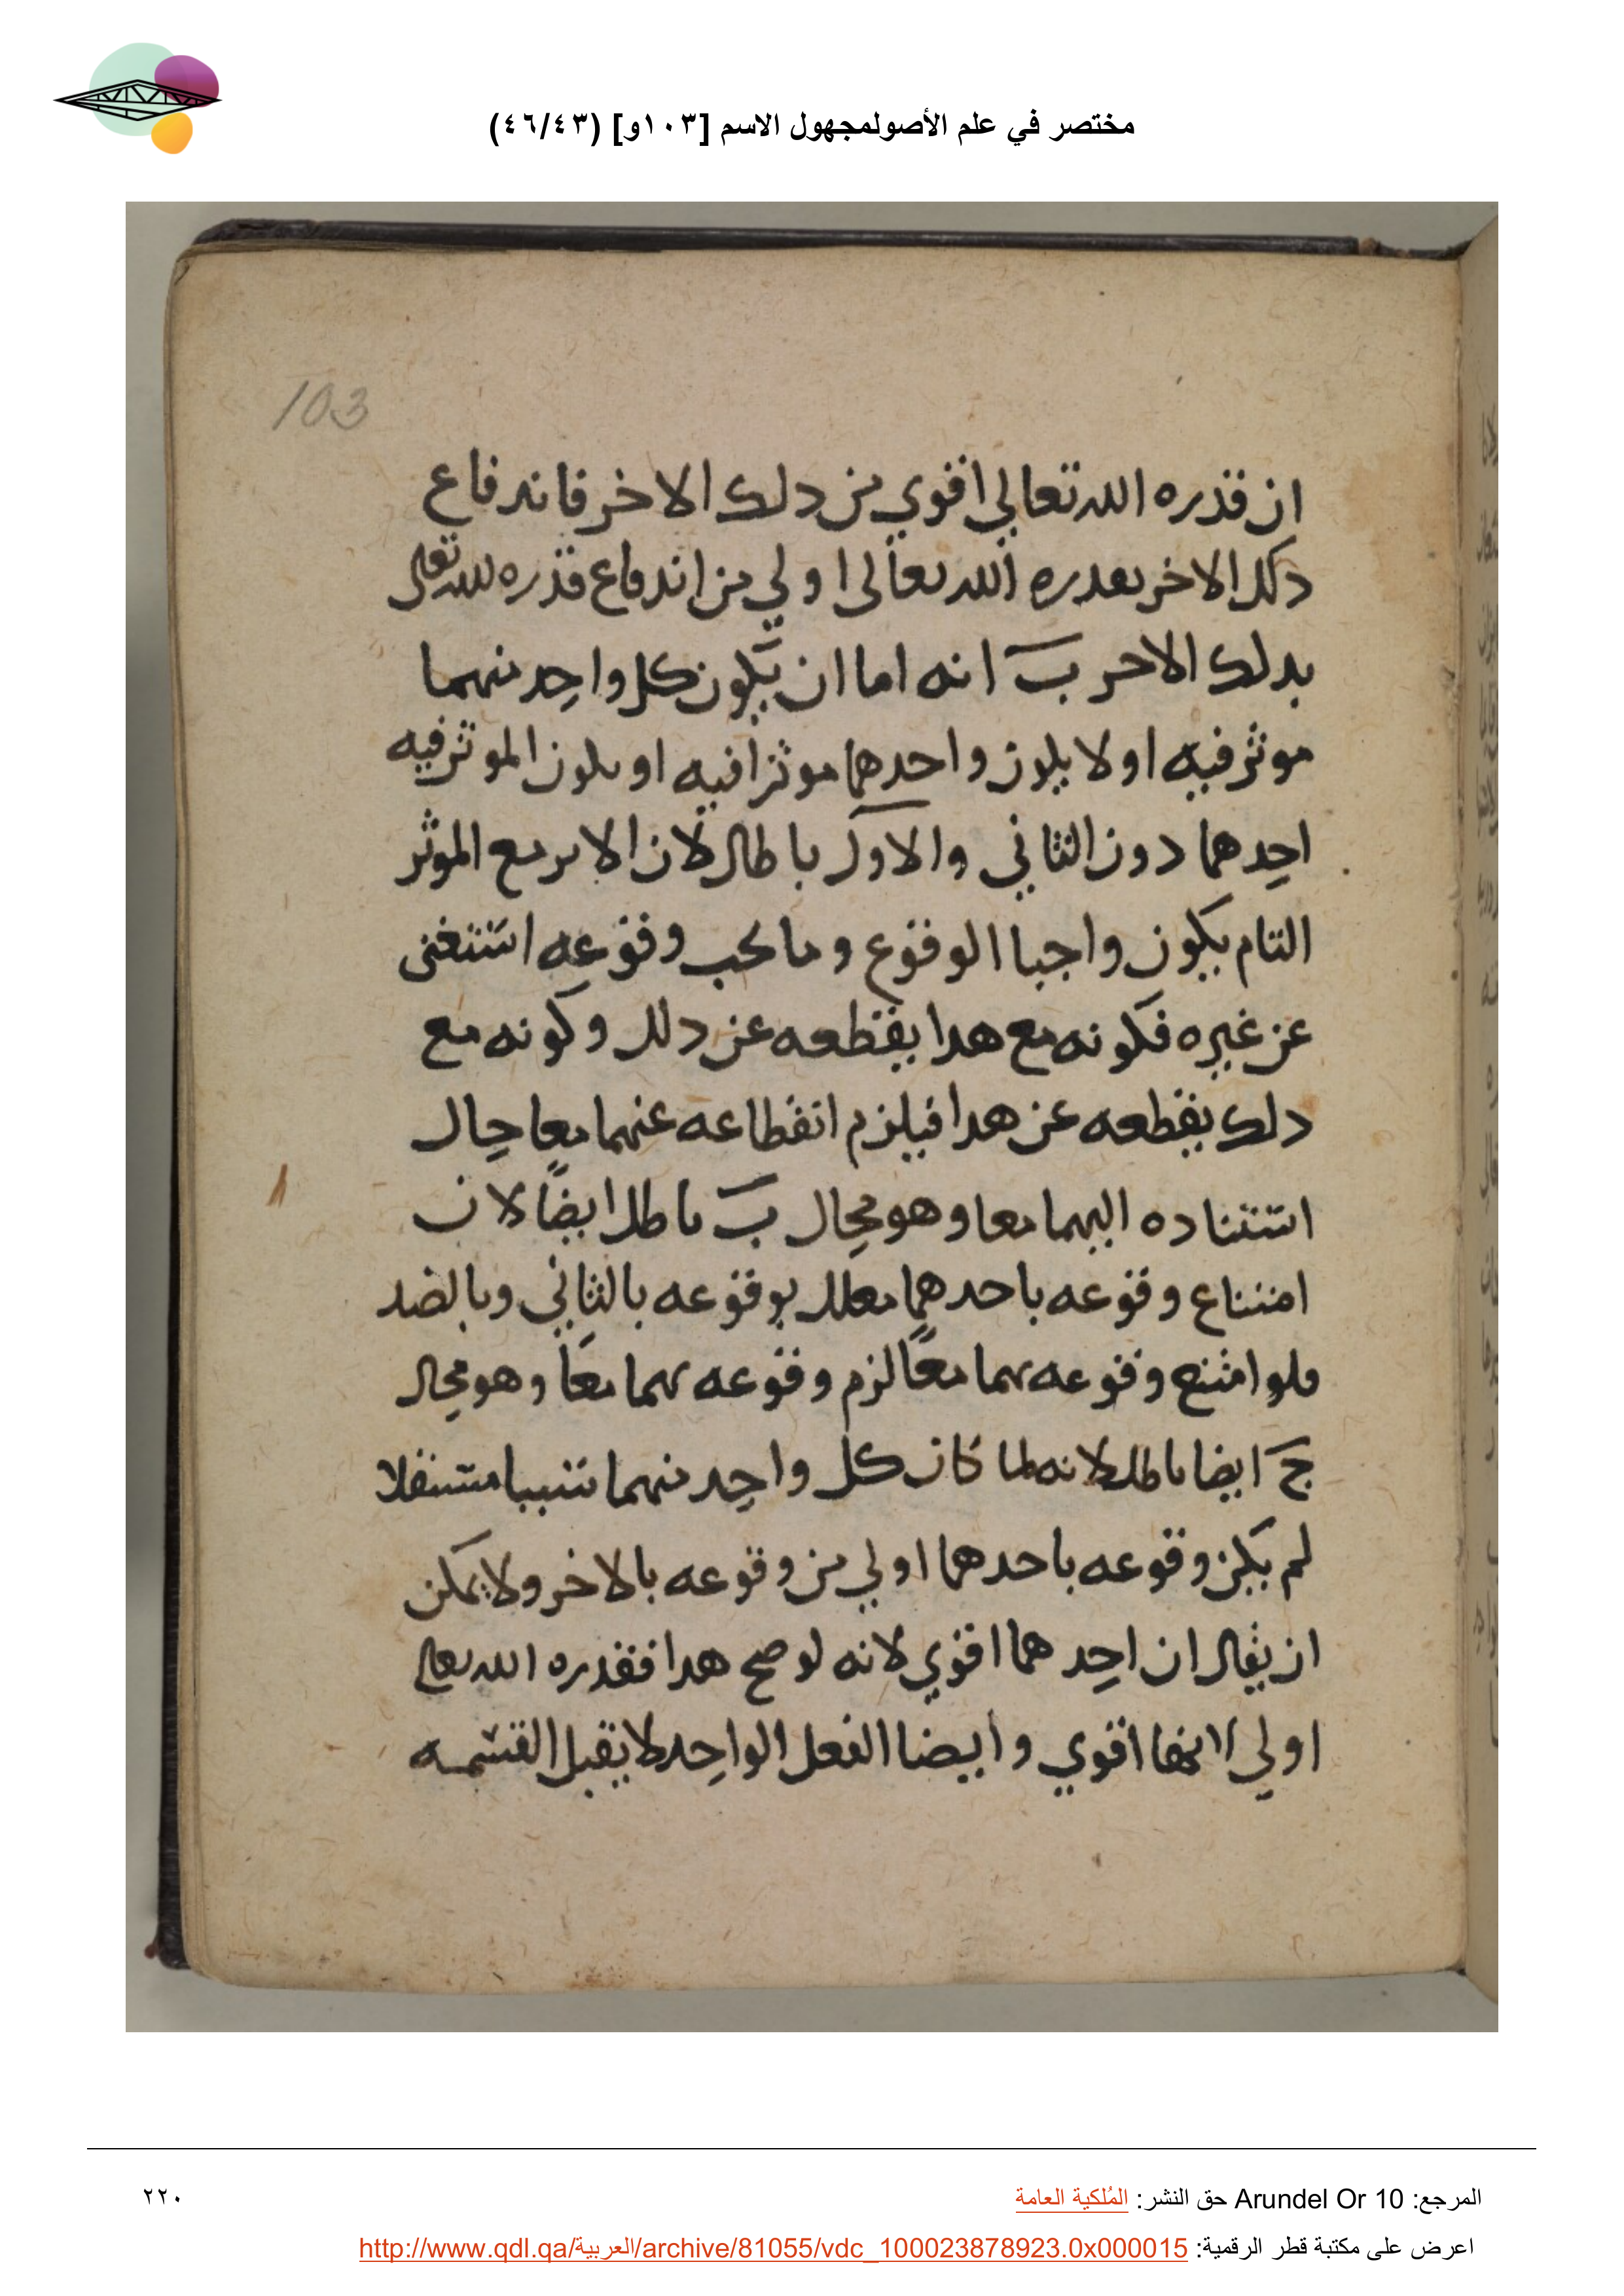 مختصر في علم الأصولمجهول الاسم [١٠٣و] (٤٦/٤٣)
103
ان قدره الله تعالي اقوي من دلك الاخر فاندفاع
دلك الاخر بقدره الله تعالى اولي من اندفاع قدره الله تعالى
بدلك الاخر ب انه اما ان يكون كل واحد منهما
موثر فيه او لا يكون واحدهما موثرا فيه او يكون الموثر فيه
احدهما دون الثاني والاول باطال لان الاثر مع الموثر
التام يكون واجبا الوقوع وما يجب وقوعه استغنى
عن غيره فكونه مع هدا يقطعه عن دلك وكونه مع
دلك يقطعه عن هدا فيلزم انقطاعه عنهما معا حال
استناده اليهما معا وهو محال ب باطل ايضا لان
امتناع وقوعه باحدهما معلل بوقوعه بالثاني وبالضد
فلو امتنع وقوعه بهما معا لزم وقوعه بهما معا وهو محال
ج ايضا باطل لانه لما كان كل واحد منهما سببا مستقلا
لم يكن وقوعه باحدهما اولي من وقوعه بالاخر ولا يمكن
ان يقال ان احدهما اقوي لانه لو صح هدا فقدره الله تعالى
اولي لانها اقوي وايضا الفعل الواحد لا يقبل القسمه
المرجع: Arundel Or 10 حق النشر: المُلكية العامة
٢٢٠
اعرض على مكتبة قطر الرقمية: http://www.qdl.qa/العربية/archive/81055/vdc_100023878923.0x000015